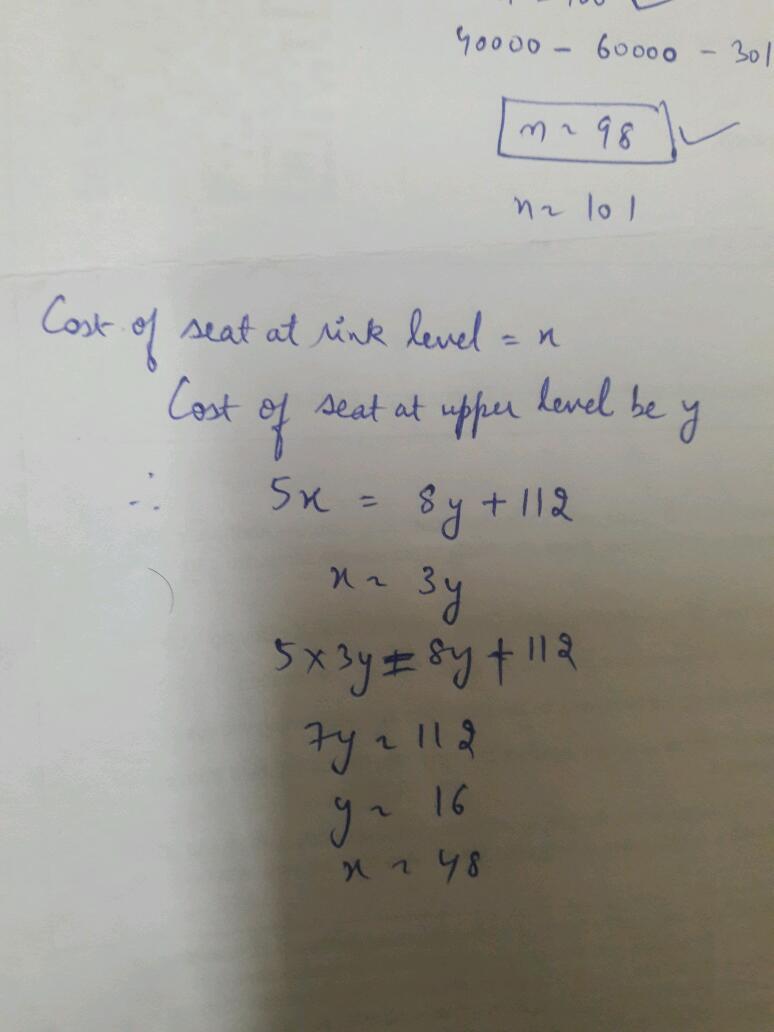 40000 - 60000 - 301
n = 98
n = 101
Cost of seat at rink level = x
Cost of seat at upper level be y
∴ 5x = 8y + 112
x = 3y
5 × 3y = 8y + 112
7y = 112
y = 16
x = 48